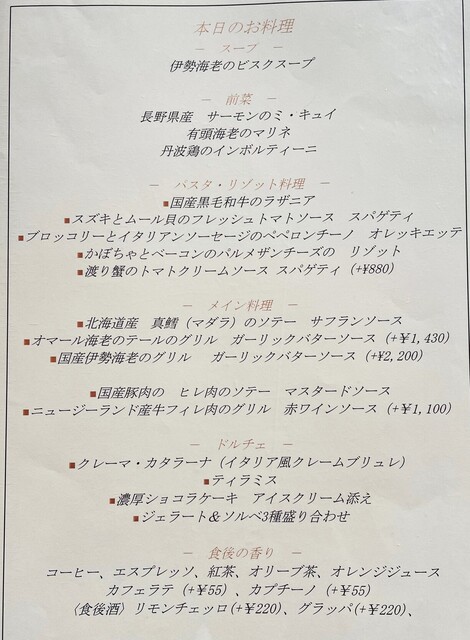 本日のお料理
― スープ ―
伊勢海老のビスクスープ
― 前菜 ―
長野県産　サーモンのミ・キュイ
有頭海老のマリネ
丹波鶏のインボルティーニ
― パスタ・リゾット料理 ―
■国産黒毛和牛のラザニア
■スズキとムール貝のフレッシュトマトソース　スパゲティ
■ブロッコリーとイタリアンソーセージのペペロンチーノ　オレッキエッテ
■かぼちゃとベーコンのパルメザンチーズの　リゾット
■渡り蟹のトマトクリームソース スパゲティ（+¥880）
― メイン料理 ―
■北海道産　真鱈（マダラ）のソテー　サフランソース
■オマール海老のテールのグリル　ガーリックバターソース（+￥1,430）
■国産伊勢海老のグリル　 ガーリックバターソース（+¥2,200）
■国産豚肉の　ヒレ肉のソテー　マスタードソース
■ニュージーランド産牛フィレ肉のグリル　赤ワインソース（+￥1,100）
― ドルチェ ―
■クレーマ・カタラーナ（イタリア風クレームブリュレ）
■ティラミス
■濃厚ショコラケーキ　アイスクリーム添え
■ジェラート＆ソルベ3種盛り合わせ
― 食後の香り ―
コーヒー、エスプレッソ、紅茶、オリーブ茶、オレンジジュース
カフェラテ（+￥55）、カプチーノ（+￥55）
〈食後酒〉リモンチェッロ(+¥220)、グラッパ(+¥220)、